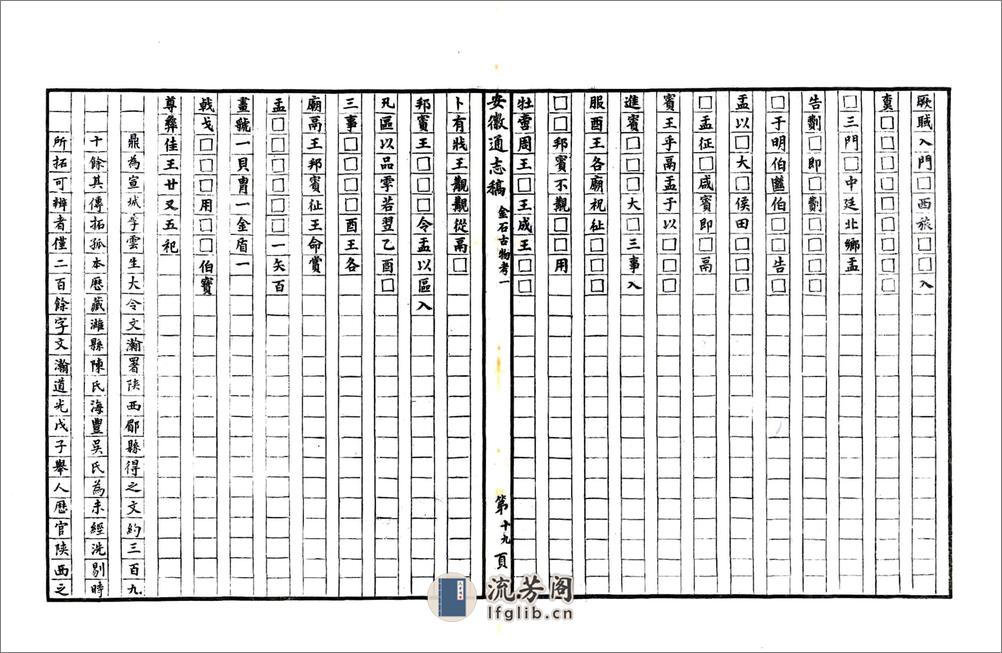 厥聝入門□西旅□□入
𡩟
□三門□中廷北鄉盂
告劗□即□劗
□于明伯□伯□告
盂以□大□侯田□□
□盂征□咸賓即□鬲
賓王乎鬲盂于以□□
進賓□□□大□三事入
服酉王各廟祝祉□□
□□邦賓不覲□□□用
牡啻周王□□王成王□□
安徽通志稿 金石古物考一 第十九頁
卜有戕王覲覲從鬲□
邦賓王□□□□令盂以區入
凡區以品雩若翌乙酉□
三事□□□□酉王各
廟鬲王邦賓征王命賞
盂□□□□□一矢百
畫虢一貝冑一金盾一
戟戈□□□用□□伯寶
尊彝隹王廿又五祀
鼎為宣城李雲生大令文瀚署陝西郿縣得之文約三百九
十餘其傳拓孤本歷藏濰縣陳氏海豐吳氏為未經洗剔時
所拓可辨者僅二百餘字文瀚道光戊子舉人歷官陝西之
流芳阁
lfglib.cn